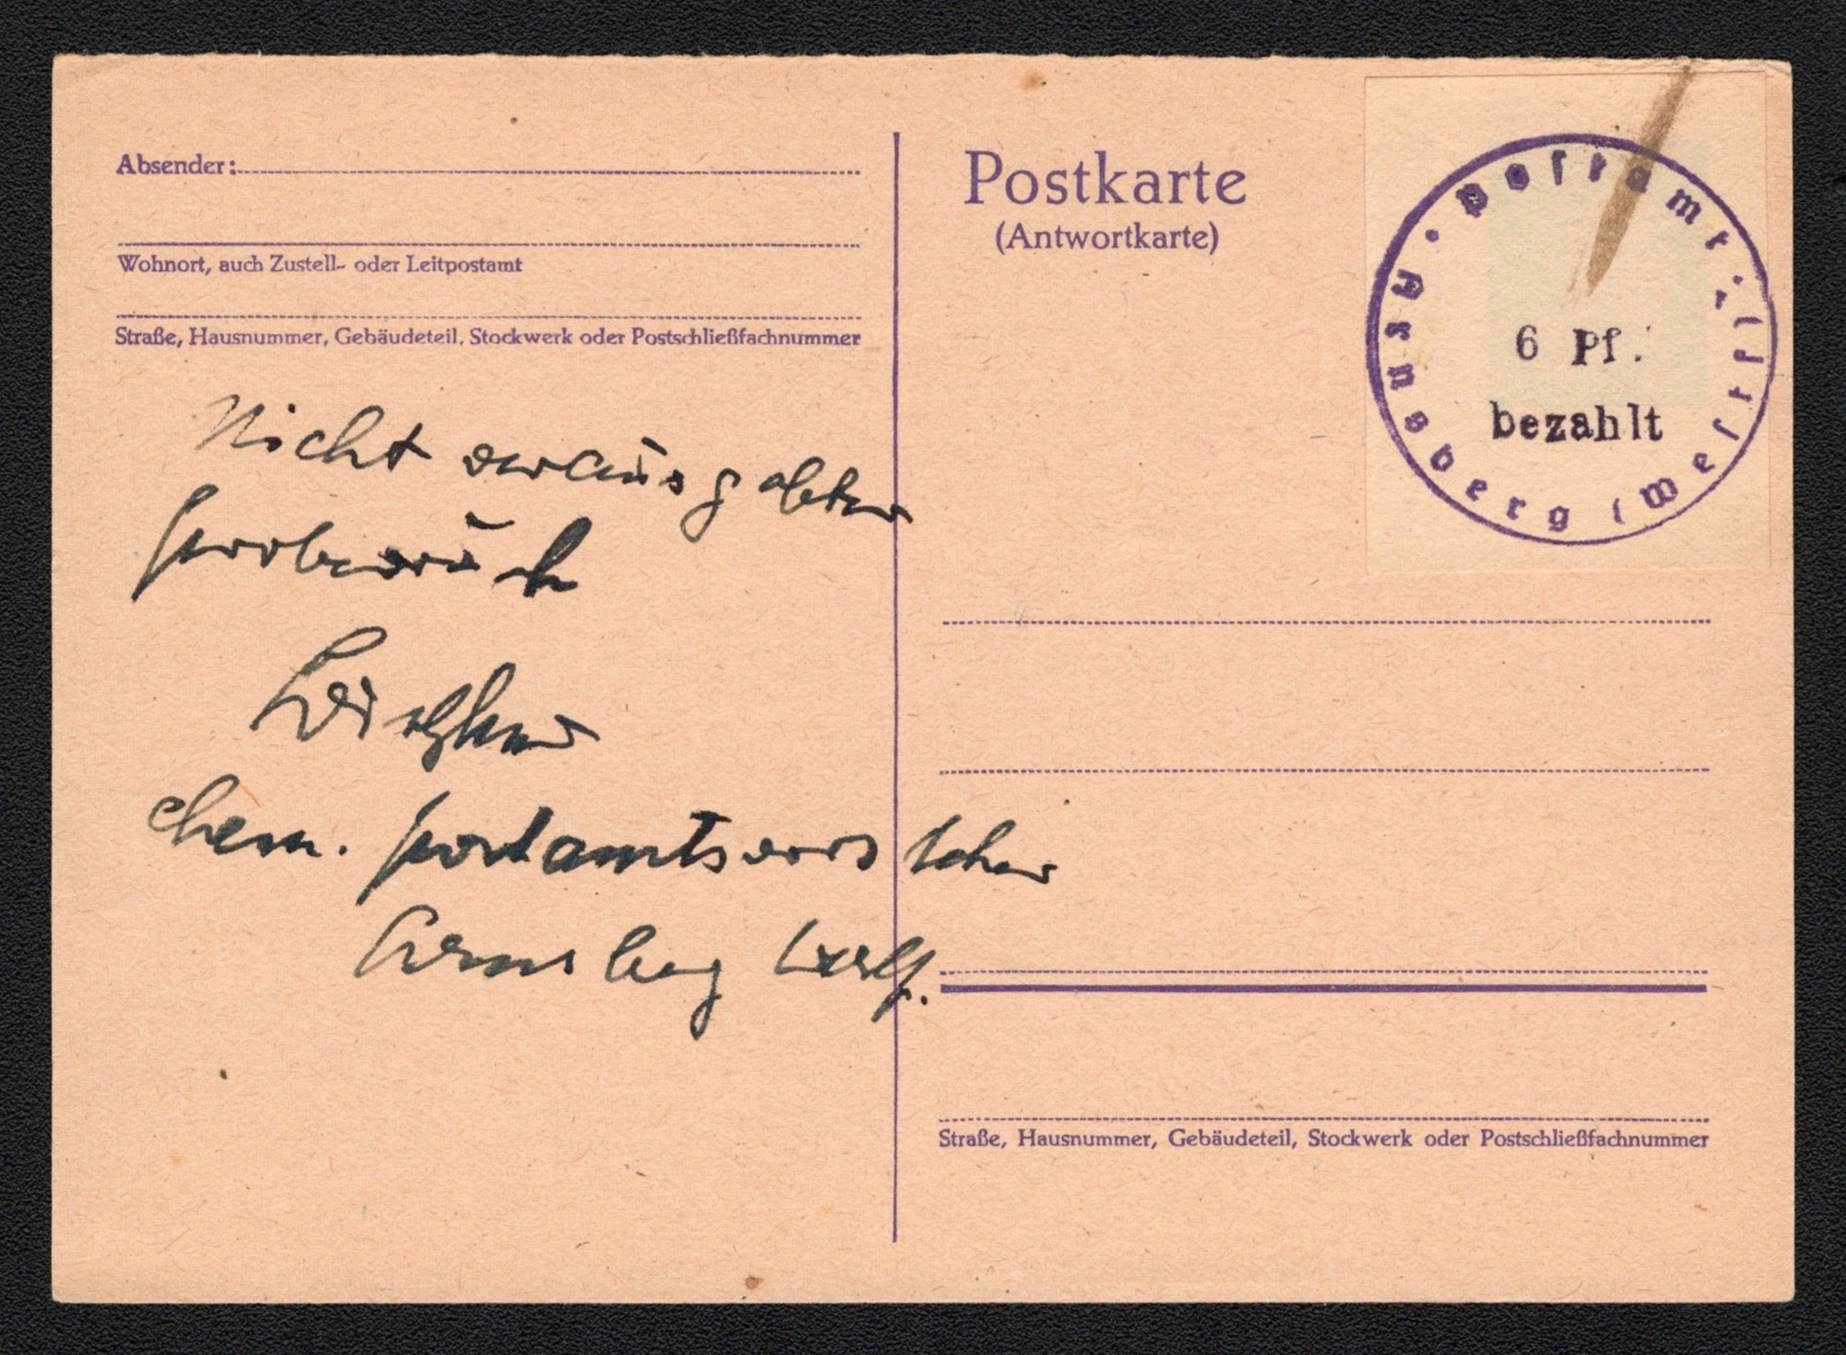 Absender:
Wohnort, auch Zustell- oder Leitpostamt
Straße, Hausnummer, Gebäudeteil, Stockwerk oder Postschließfachnummer
Nicht verausgabter
Probedruck
chem. Postamtsvorsteher
Arnsberg Westf.
Postkarte
(Antwortkarte)
Postamt · Arnsberg (Westf.)
6 Pf.
bezahlt
Straße, Hausnummer, Gebäudeteil, Stockwerk oder Postschließfachnummer